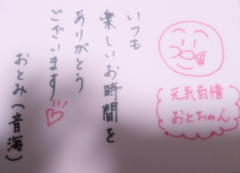 いつも
楽しいお時間を
ありがとう
ございます
おとみ(音海)
元気百倍
おとちゃん